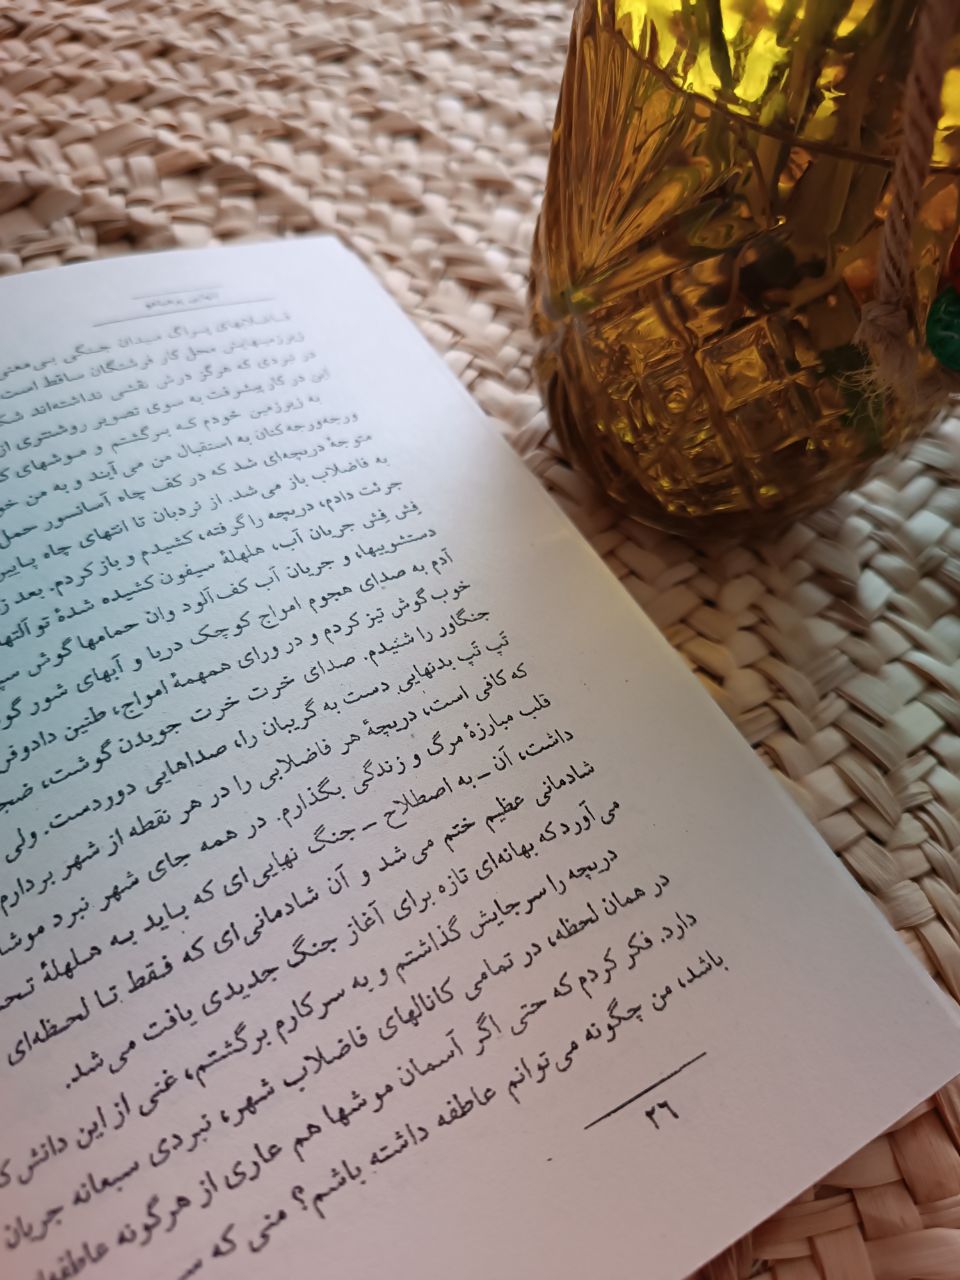 تنهایی پرهیاهو
فاضلابهای پراگ میدان جنگی بی‌معنی
زیرزمینهایش محل کار فرشتگان ساقط است،
در نبردی که هرگز درش نقشی نداشته‌اند
این در کار پیشرفت به سوی تصویر روشنتری از
به زیرزمین خودم که برگشتم و موشهای
ورجه‌ورجه‌کنان به استقبال من می‌آیند و به من
متوجهٔ دریچه‌ای شد که در کف چاه آسانسور حمل
به فاضلاب باز می‌شد. از نردبان تا انتهای چاه پایین
جرئت دادم، دریچه را گرفته، کشیدم و باز کردم. بعد
فِش فِش جریان آب، هلهلهٔ سیفون کشیده شدهٔ توالتها
دستشوییها، و جریان آب کف‌آلود وان حمامها گوش
آدم به صدای هجوم امواج کوچک دریا و آبهای شور
خوب گوش تیز کردم و در ورای همهمهٔ امواج، طنین دادوفر
جنگاور را شنیدم. صدای خرت خرت جویدن گوشت،
تَپ تَپ بدنهایی دست به گریبان را، صداهایی دوردست. ولی
که کافی است، دریچهٔ هر فاضلابی را در هر نقطه از شهر بردارم
قلب مبارزهٔ مرگ و زندگی بگذارم. در همه جای شهر نبرد موشها
داشت، آن ــ به اصطلاح ــ جنگ نهایی‌ای که باید به هلهلهٔ
شادمانی عظیم ختم می‌شد و آن شادمانی‌ای که فقط تا لحظه‌ای
می‌آورد که بهانه‌ای تازه برای آغاز جنگ جدیدی یافت می‌شد.
دریچه را سرجایش گذاشتم و به سر کارم برگشتم، غنی از این دانش
در همان لحظه، در تمامی کانالهای فاضلاب شهر، نبردی سبعانه جریان
دارد. فکر کردم که حتی اگر آسمان موشها هم عاری از هرگونه عاطفه‌ای
باشد، من چگونه می‌توانم عاطفه داشته باشم؟ منی که
۲۶